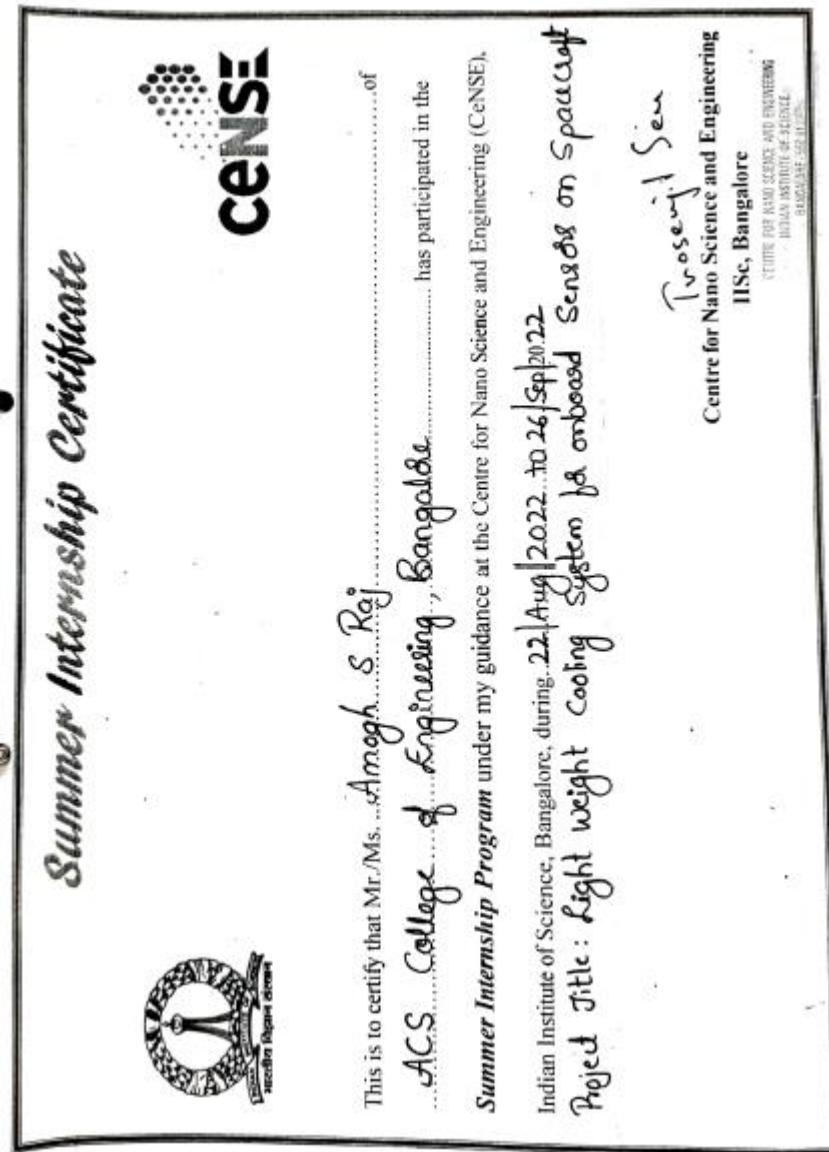 Summer Internship Certificate
भारतीय विज्ञान संस्थान
CeNSE
This is to certify that Mr./Ms. Amogh S Raj of
ACS College of Engineering, Bangalore has participated in the
Summer Internship Program under my guidance at the Centre for Nano Science and Engineering (CeNSE),
Indian Institute of Science, Bangalore, during 22/Aug/2022 to 26/Sep/2022
Project Title: Light weight Cooling System for onboard Sensors on Spacecraft
Prosenjit Sen
Centre for Nano Science and Engineering
IISc, Bangalore
CENTRE FOR NANO SCIENCE AND ENGINEERING
INDIAN INSTITUTE OF SCIENCE